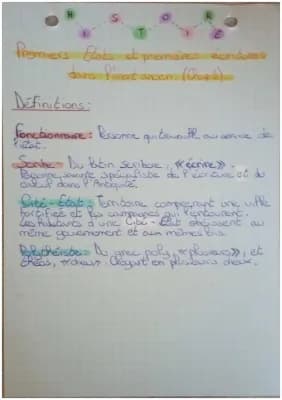 HISTOIRE
Premiers Etats et premières écritures
dans l'orient ancien
Définitions:
Fonctionnaire: Personne qui travaille au service de
l'état.
Scribe: Du latin scribere, «écrire».
Personne savante spécialiste de l'écriture et du
calcul dans l'Antiquité.
Cité-Etat: Territoire comprenant une ville
fortifiée et les campagnes qui l'entourent.
Les habitants d'une Cité-Etat obéissent au
même gouvernement et aux mêmes lois.
Polythéiste: Du grec poly, «plusieurs», et
théos, «dieu». Croyant en plusieurs dieux.